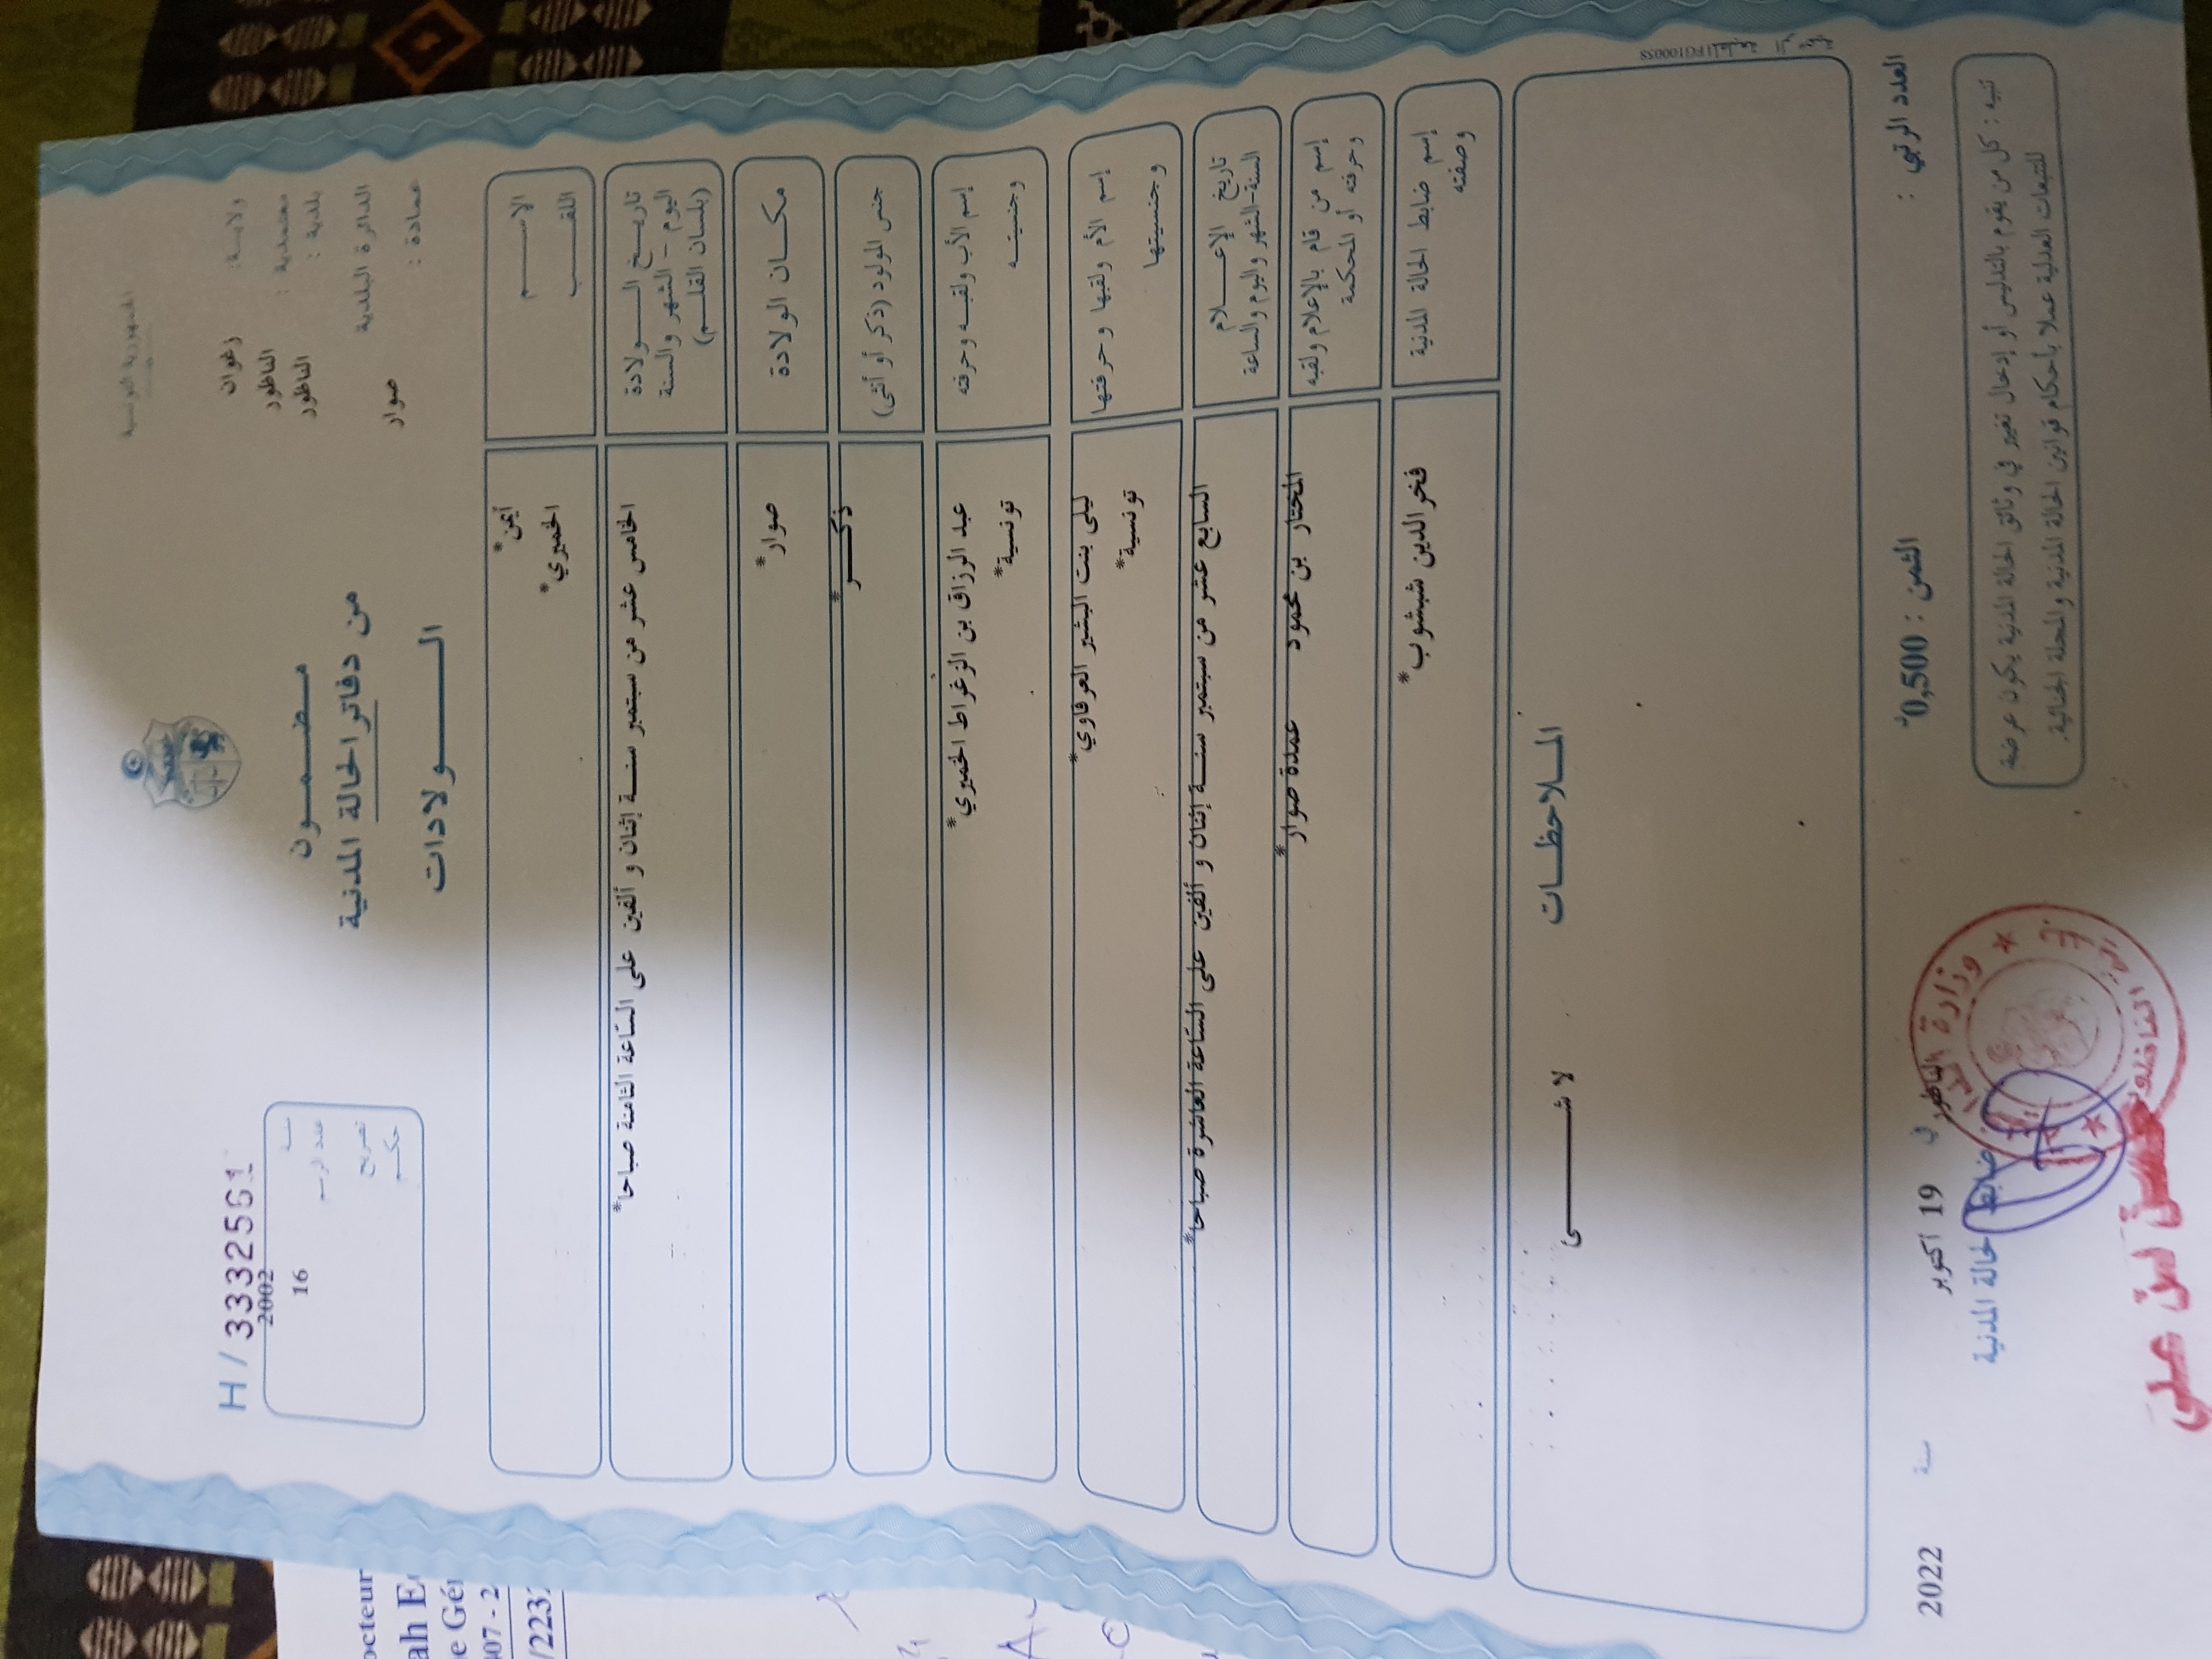 الجمهورية التونسية
ولاية: زغوان
معتمدية : الناظور
بلدية : الناظور
الدائرة البلدية
عمادة : صوار
مضمون
من دفاتر الحالة المدنية
الولادات
H / 3332561
سنة 2002
عدد الرسم 16
تصريح
حكم
الإسم أيمن*
اللقب الخميري*
تاريخ الولادة
اليوم - الشهر والسنة
(بلسان القلم)
الخامس عشر من سبتمبر سنة إثنان و ألفين على الساعة الثامنة صباحا*
مكان الولادة صوار*
جنس المولود (ذكر أو أنثى) ذكر*
إسم الأب ولقبه وحرفته عبد الرزاق بن الزغراط الخميري*
وجنسيته تونسية*
إسم الأم ولقبها وحرفتها ليلى بنت البشير العرفاوي*
وجنسيتها تونسية*
تاريخ الإعلام
السنة-الشهر واليوم والساعة
السابع عشر من سبتمبر سنة إثنان و ألفين على الساعة العاشرة صباحا*
إسم من قام بالإعلام ولقبه
وحرفته أو المحكمة
المختار بن محمود عمدة صوار*
إسم ضابط الحالة المدنية
وصفته
فخر الدين شبشوب*
الملاحظات
لا شىء
FG100058
العدد الرتبي :
الثمن : 0,500د
الناظور في 19 أكتوبر سنة 2022
ضابط الحالة المدنية
تنبيه : كل من يقوم بالتدليس أو إدخال تغيير في وثائق الحالة المدنية يكون عرضة
للتتبعات العدلية عملا بأحكام قوانين الحالة المدنية والمجلة الجنائية.
وزارة
الناظور
حسن بن علي
octeur
ah E
e Gé
007 - 2
/223